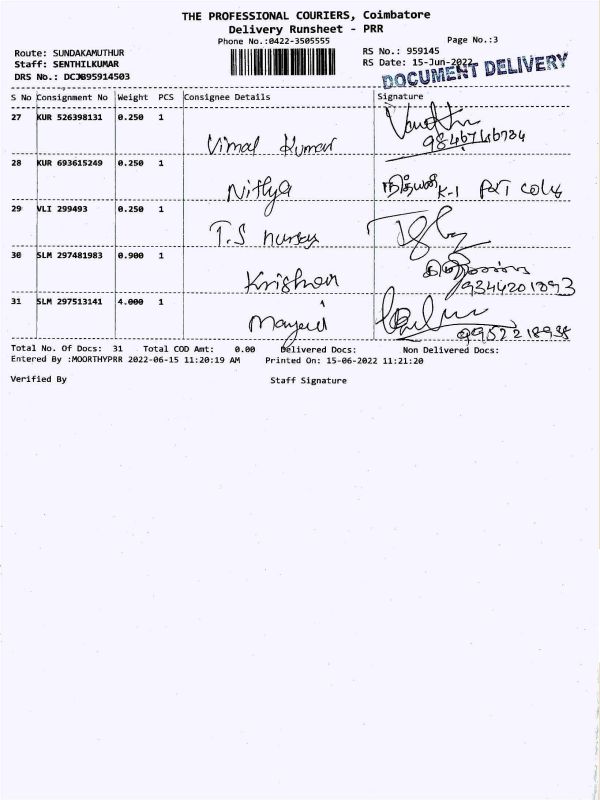 THE PROFESSIONAL COURIERS, Coimbatore
Delivery Runsheet - PRR
Phone No.:0422-3505555
Page No.:3
Route: SUNDAKAMUTHUR
RS No.: 959145
Staff: SENTHILKUMAR
RS Date: 15-Jun-2022
DOCUMENT DELIVERY
S No Consignment No Weight PCS Consignee Details Signature
27 KUR 526398131 0.250 1
Vimal Kumar
28 KUR 693615249 0.250 1
Nithya K-1
29 VLI 299493 0.250 1
T.S
30 SLM 297481983 0.900 1
Krishnan
31 SLM 297513141 4.000 1
Total No. Of Docs: 31 Total COD Amt: 0.00 Delivered Docs: Non Delivered Docs:
Entered By :MOORTHYPRR 2022-06-15 11:20:19 AM Printed On: 15-06-2022 11:21:20
Verified By Staff Signature